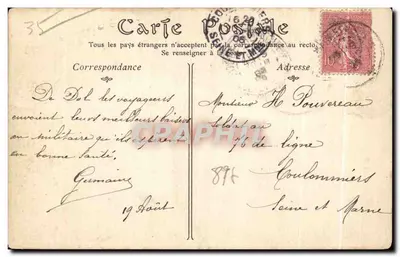 35
Carte Postale
Tous les pays étrangers n'acceptent pas la correspondance au recto
Se renseigner à
Correspondance
Adresse
De Dol les voyageurs
envoient leurs meilleurs baisers
au militaire qu'ils espèrent
en bonne santé.
Germaine
19 Août
Monsieur H Pouvereau
Soldat au
76 de ligne
896
Coulommiers
Seine et Marne